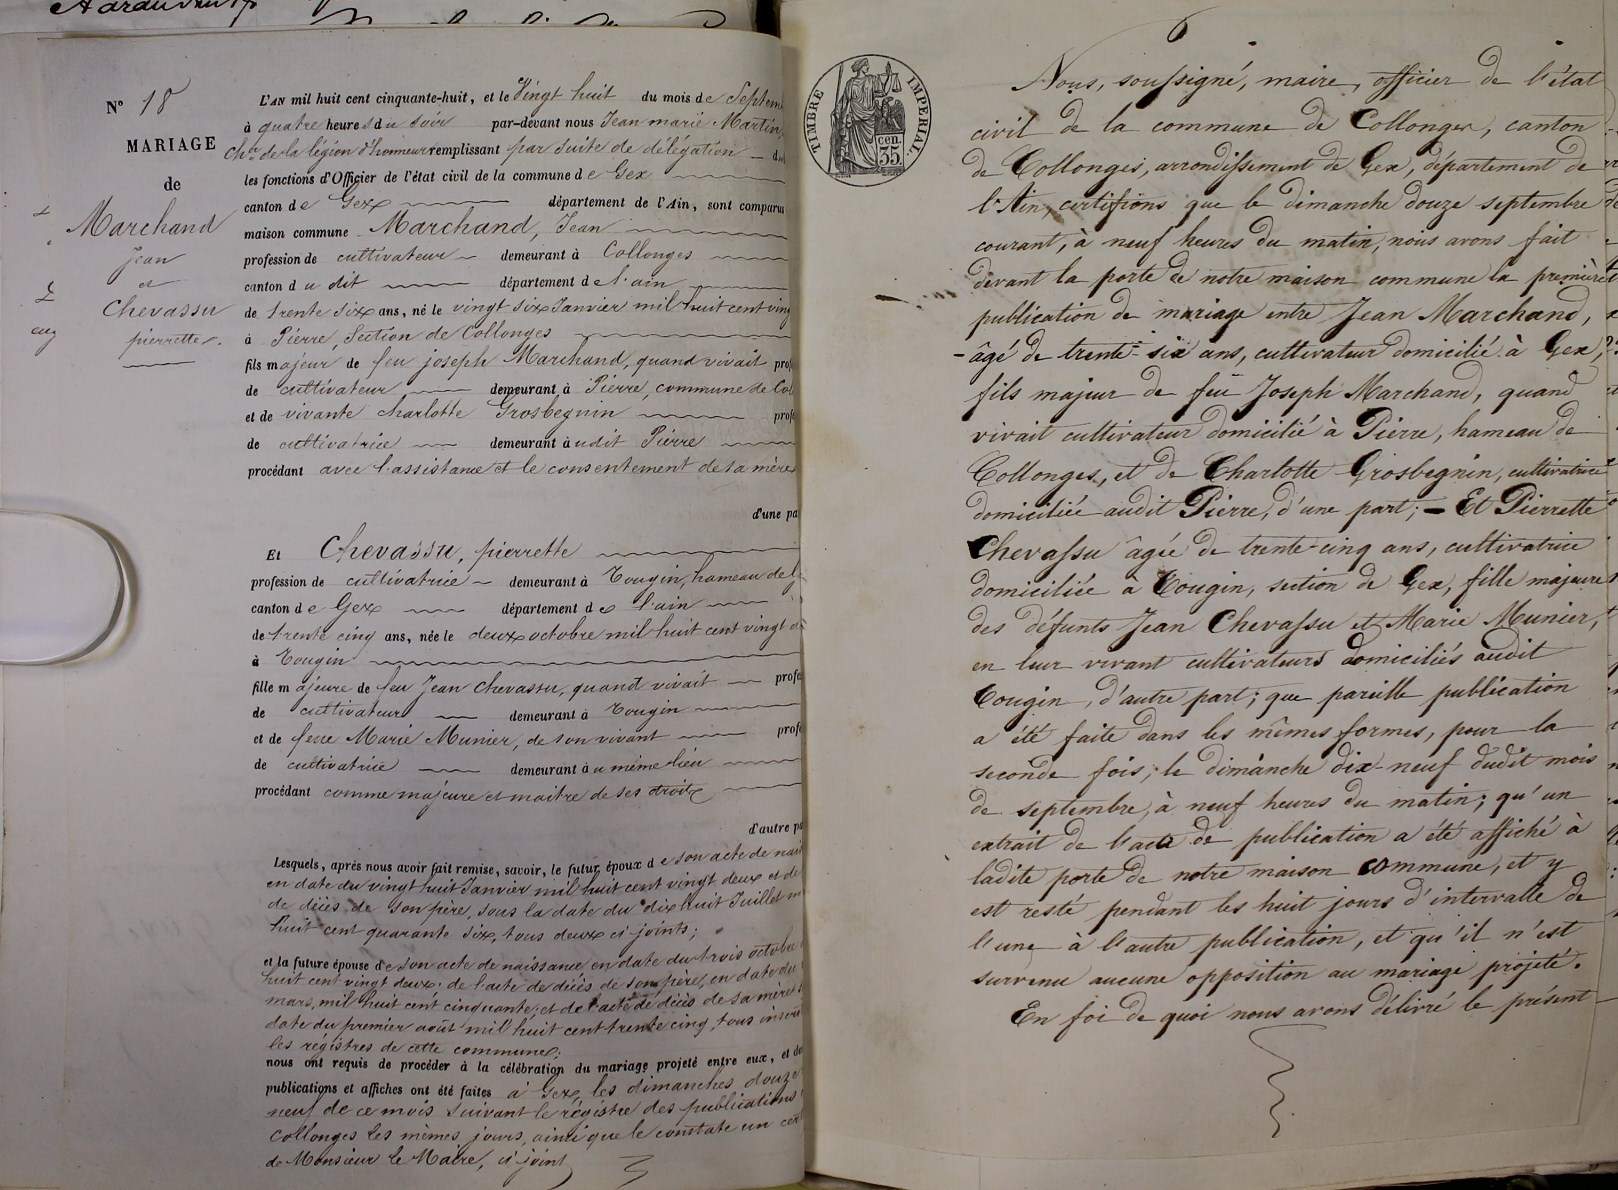 N° 18
MARIAGE
de
Marchand
Jean
et
Chevassu
pierrette
L'AN mil huit cent cinquante-huit, et le Vingt huit du mois de Septem
à quatre heures du soir par-devant nous Jean marie Martin,
Chr de la légion d'honneur remplissant par suite de délégation
les fonctions d'Officier de l'état civil de la commune de Gex
canton de Gex département de l'Ain, sont comparus
maison commune Marchand, Jean
profession de cultivateur demeurant à Collonges
canton du dit département de l'ain
de trente six ans, né le vingt six Janvier mil huit cent ving
à Pierre, Section de Collonges
fils majeur de feu joseph Marchand, quand vivait prof
de cultivateur demeurant à Pierre, commune de Col
et de vivante charlotte Grosbegnin profe
de cultivatrice demeurant audit Pierre
procédant avec l'assistance et le consentement de sa mère
d'une pa
Et Chevassu, pierrette
profession de cultivatrice demeurant à Tougin, hameau de
canton de Gex département de l'ain
de trente cinq ans, née le deux octobre mil huit cent vingt d
à Tougin
fille majeure de feu Jean Chevassu, quand vivait profe
de cultivateur demeurant à Tougin
et de feue Marie Munier, de son vivant profe
de cultivatrice demeurant au même lieu
procédant comme majeure et maitre de ses droits
d'autre pa
Lesquels, après nous avoir fait remise, savoir, le futur époux de son acte de nais
en date du vingt huit Janvier mil huit cent vingt deux et de
de décès de son père, sous la date du dix huit Juillet m
huit cent quarante six, tous deux ci joints;
et la future épouse de son acte de naissance en date du trois octobre
huit cent vingt deux; de l'acte de décès de son père, en date du
mars, mil huit cent cinquante, et de l'acte de décès de sa mère
date du premier août mil huit cent trente cinq, tous inscri
les registres de cette commune;
nous ont requis de procéder à la célébration du mariage projeté entre eux, et do
publications et affiches ont été faites à Gex, les dimanches douze
neuf de ce mois suivant le régistre des publications
Collonges les mêmes jours, ainsi que le constate un cer
de Monsieur le Maire, ci joint
TIMBRE IMPERIAL.
35 cen.
Nous, soussigné, maire, officier de l'état
civil de la commune de Collonges, canton
de Collonges, arrondissement de Gex, département de
l'Ain, certifions que le dimanche douze septembre
courant, à neuf heures du matin, nous avons fait
devant la porte de notre maison commune la première
publication de mariage entre Jean Marchand,
âgé de trente-six ans, cultivateur domicilié à Gex,
fils majeur de feu Joseph Marchand, quand
vivait cultivateur domicilié à Pierre, hameau de
Collonges, et de Charlotte Grosbegnin, cultivatrice
domiciliée audit Pierre, d'une part; – Et Pierrette
Chevassu âgée de trente-cinq ans, cultivatrice
domiciliée à Tougin, section de Gex, fille majeure
des défunts Jean Chevassu et Marie Munier,
en leur vivant cultivateurs domiciliés audit
Tougin, d'autre part; que pareille publication
a été faite dans les mêmes formes, pour la
seconde fois, le dimanche dix-neuf dudit mois
de septembre, à neuf heures du matin; qu'un
extrait de l'acte de publication a été affiché à
ladite porte de notre maison commune, et y
est resté pendant les huit jours d'intervalle de
l'une à l'autre publication, et qu'il n'est
survenu aucune opposition au mariage projeté.
En foi de quoi nous avons délivré le présent